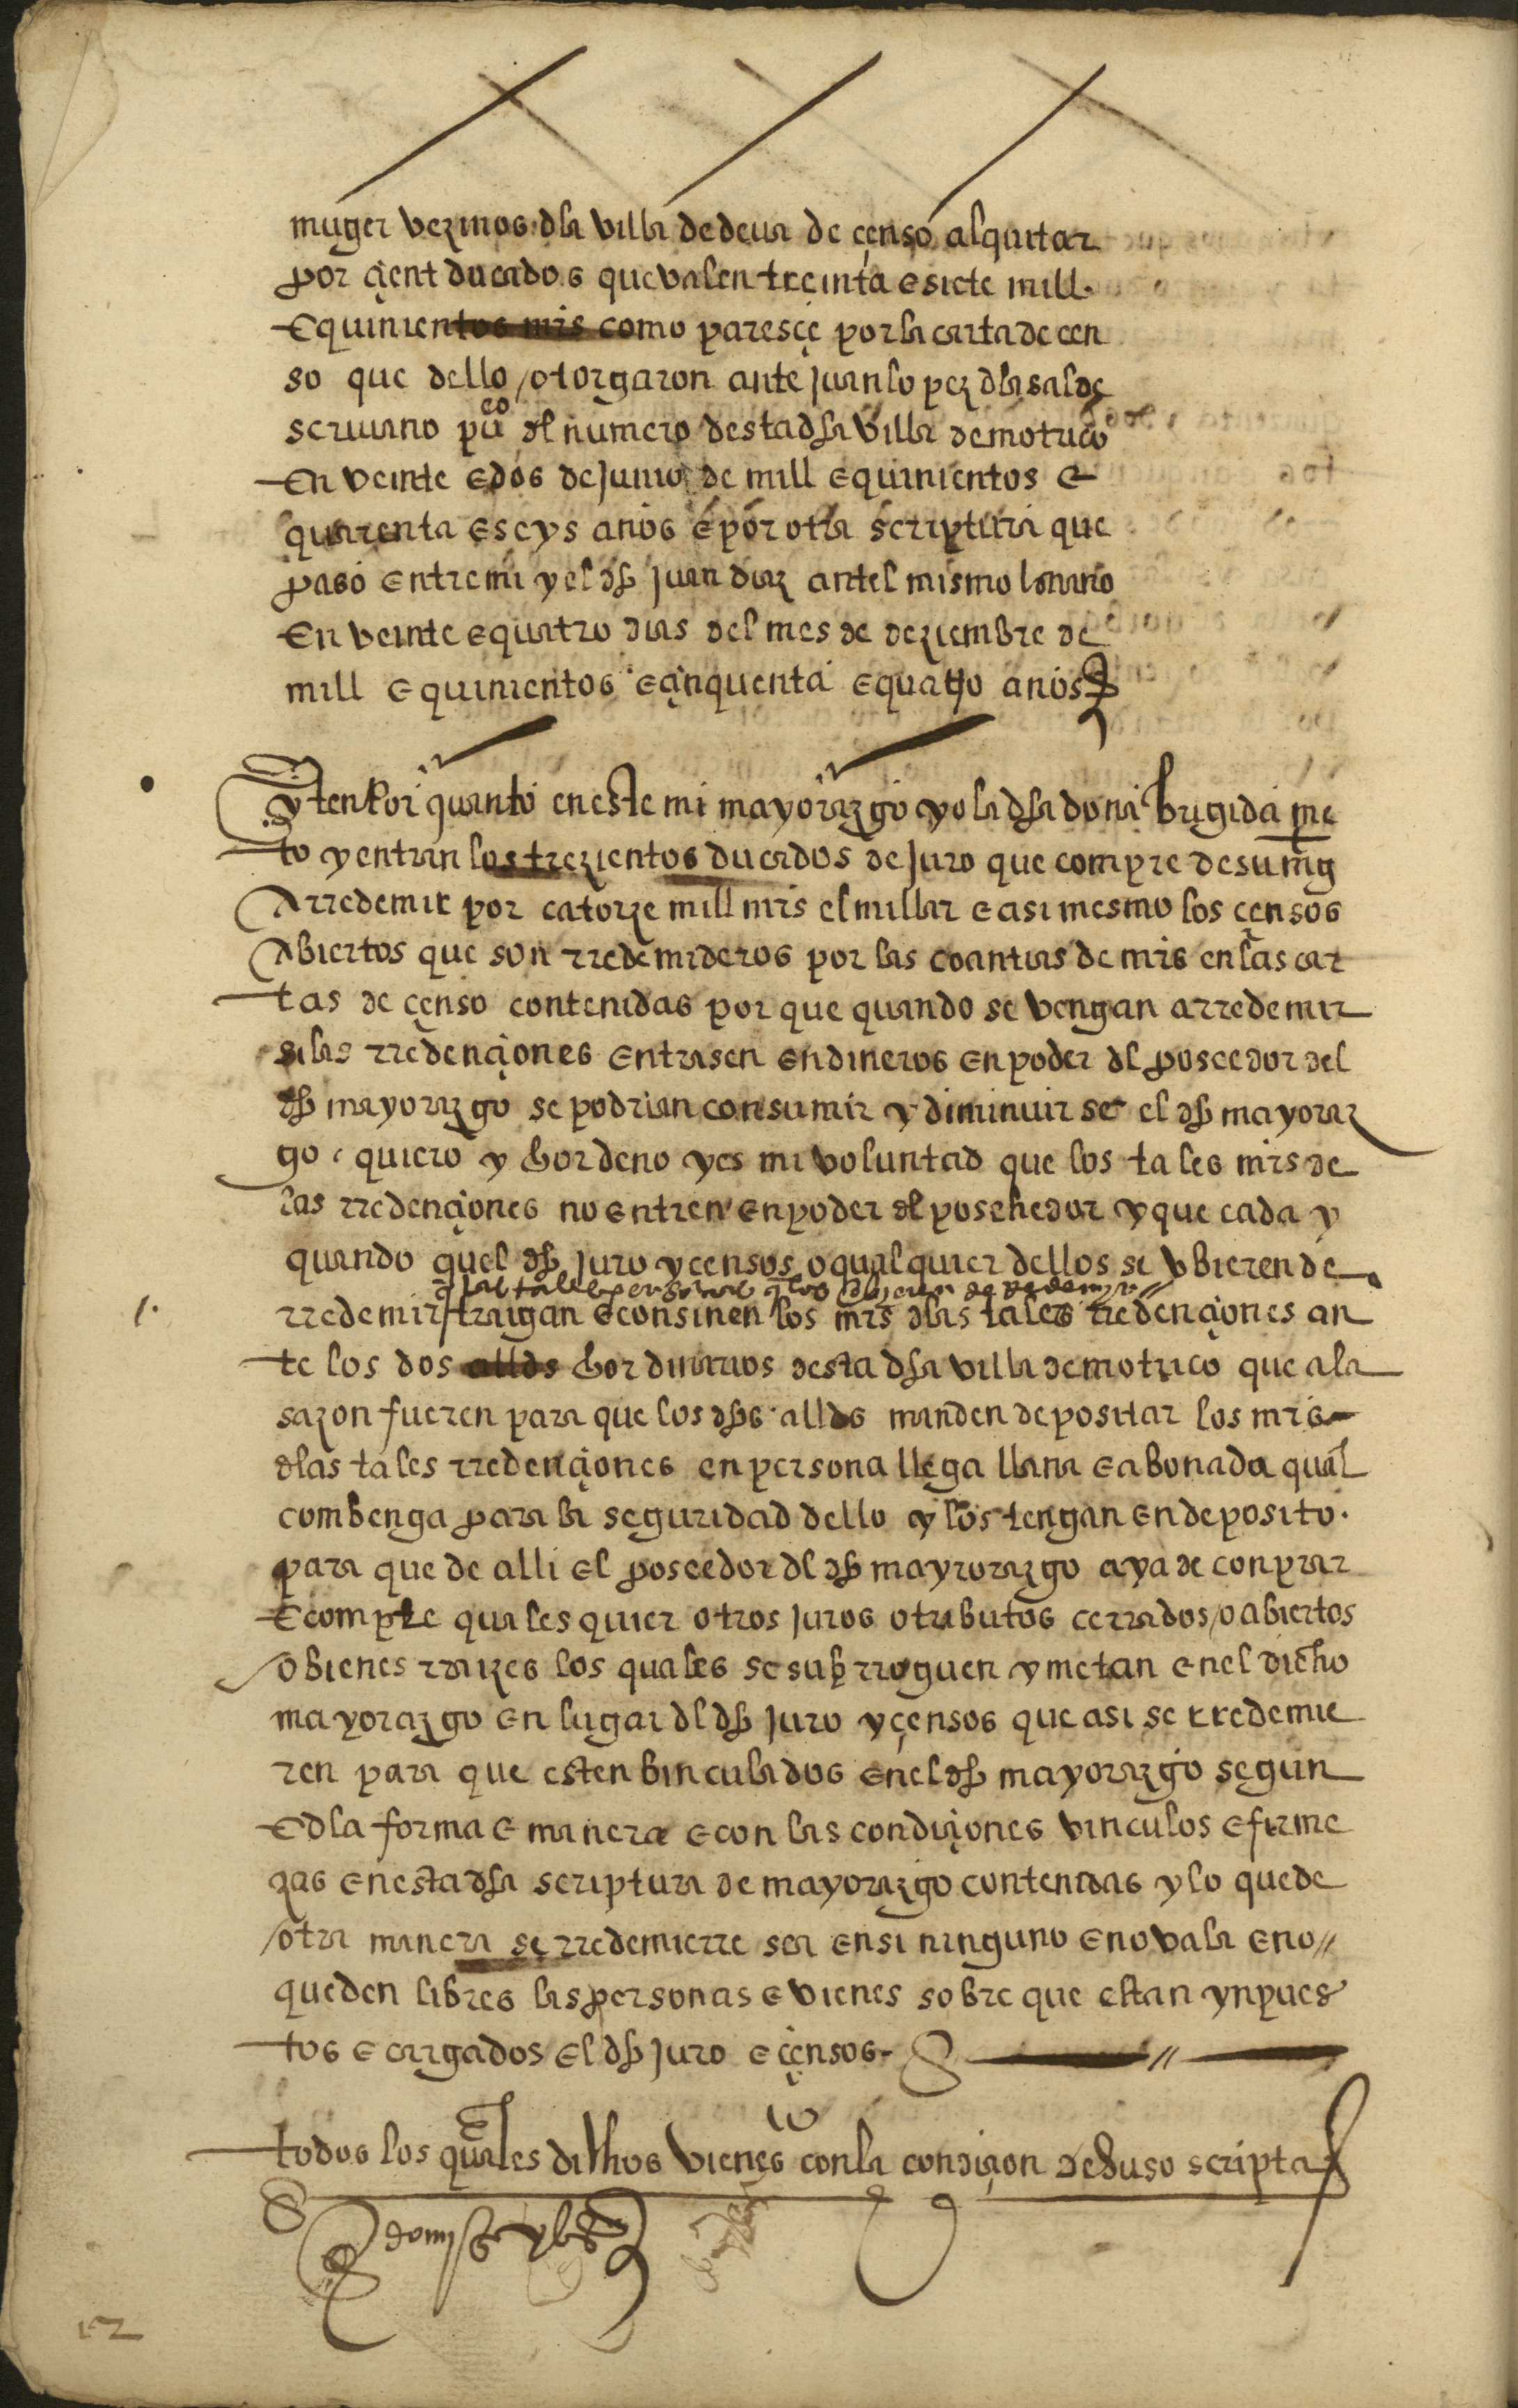 muger vezinos dla villa de deva de çenso alquitar
por çient ducados que valen treinta e siete mill
e quinientos mrs como paresçe por la carta de cen
so que dello /otorgaron ante juan lopez dla salde
scrivano puco dl numero desta dha villa de motrico
en veinte e dos de junio de mill e quinientos e
quarenta e seys años e por otra scriptura que
paso entre mi y el dho juan diaz antel mismo
en veinte e quatro dias del mes de deziembre de
mill e quinientos e çinquenta e quatro años
yten por quanto en este mi mayorazgo yo la dha doña brigida me
to y entran los trezientos ducados de juro que compre de su mg
a rredemir por catorze mill mrs el millar e asi mesmo los çensos
abiertos que son rredemideros por las coantias de mrs en las car
tas de çenso contenidas por que quando se vengan a rredemir
si las rredençiones entrasen en dineros en poder dl poseedor del
dho mayorazgo se podrian consumir y diminuir se el dho mayoraz
go quiero y hordeno y es mi voluntad que los tales mrs de
las rredençiones no entren en poder dl posehedor y que cada y
quando quel dho juro y censos o qualquier dellos se ubieren de
q las tales personas q los obieren de redemyr //
rredemir / traigan e consinen los mrs dlas tales rredençiones an
te los dos allds hordinarios desta dha villa de motrico que a la
sazon fueren para que los dhos allds manden depositar los mrs
dlas tales rredençiones en persona llega llana e abonada qual
combenga para la seguridad dello y los tengan en deposito
para que de alli el poseedor dl dho mayrorazgo aya de conprar
e compre quales quier otros juros o tributos cerrados /o abiertos
o bienes rraizes los quales se subrroguen y metan en el dicho
mayorazgo en lugar dl dho juro y çensos que asi se rredemie
ren para que esten binculados en el dho mayorazgo segun
e dla forma e manera e con las condiçiones vinculos e firme
zas en esta dha scriptura de mayorazgo contenidas y lo que de
/otra manera se rredemierre sea en si ninguno e no vala e no //
queden libres las personas e vienes sobre que estan ynpues
tos e cargados el dho juro e çensos //
todos los quales dichos vienes con la condiçion de suso scripta